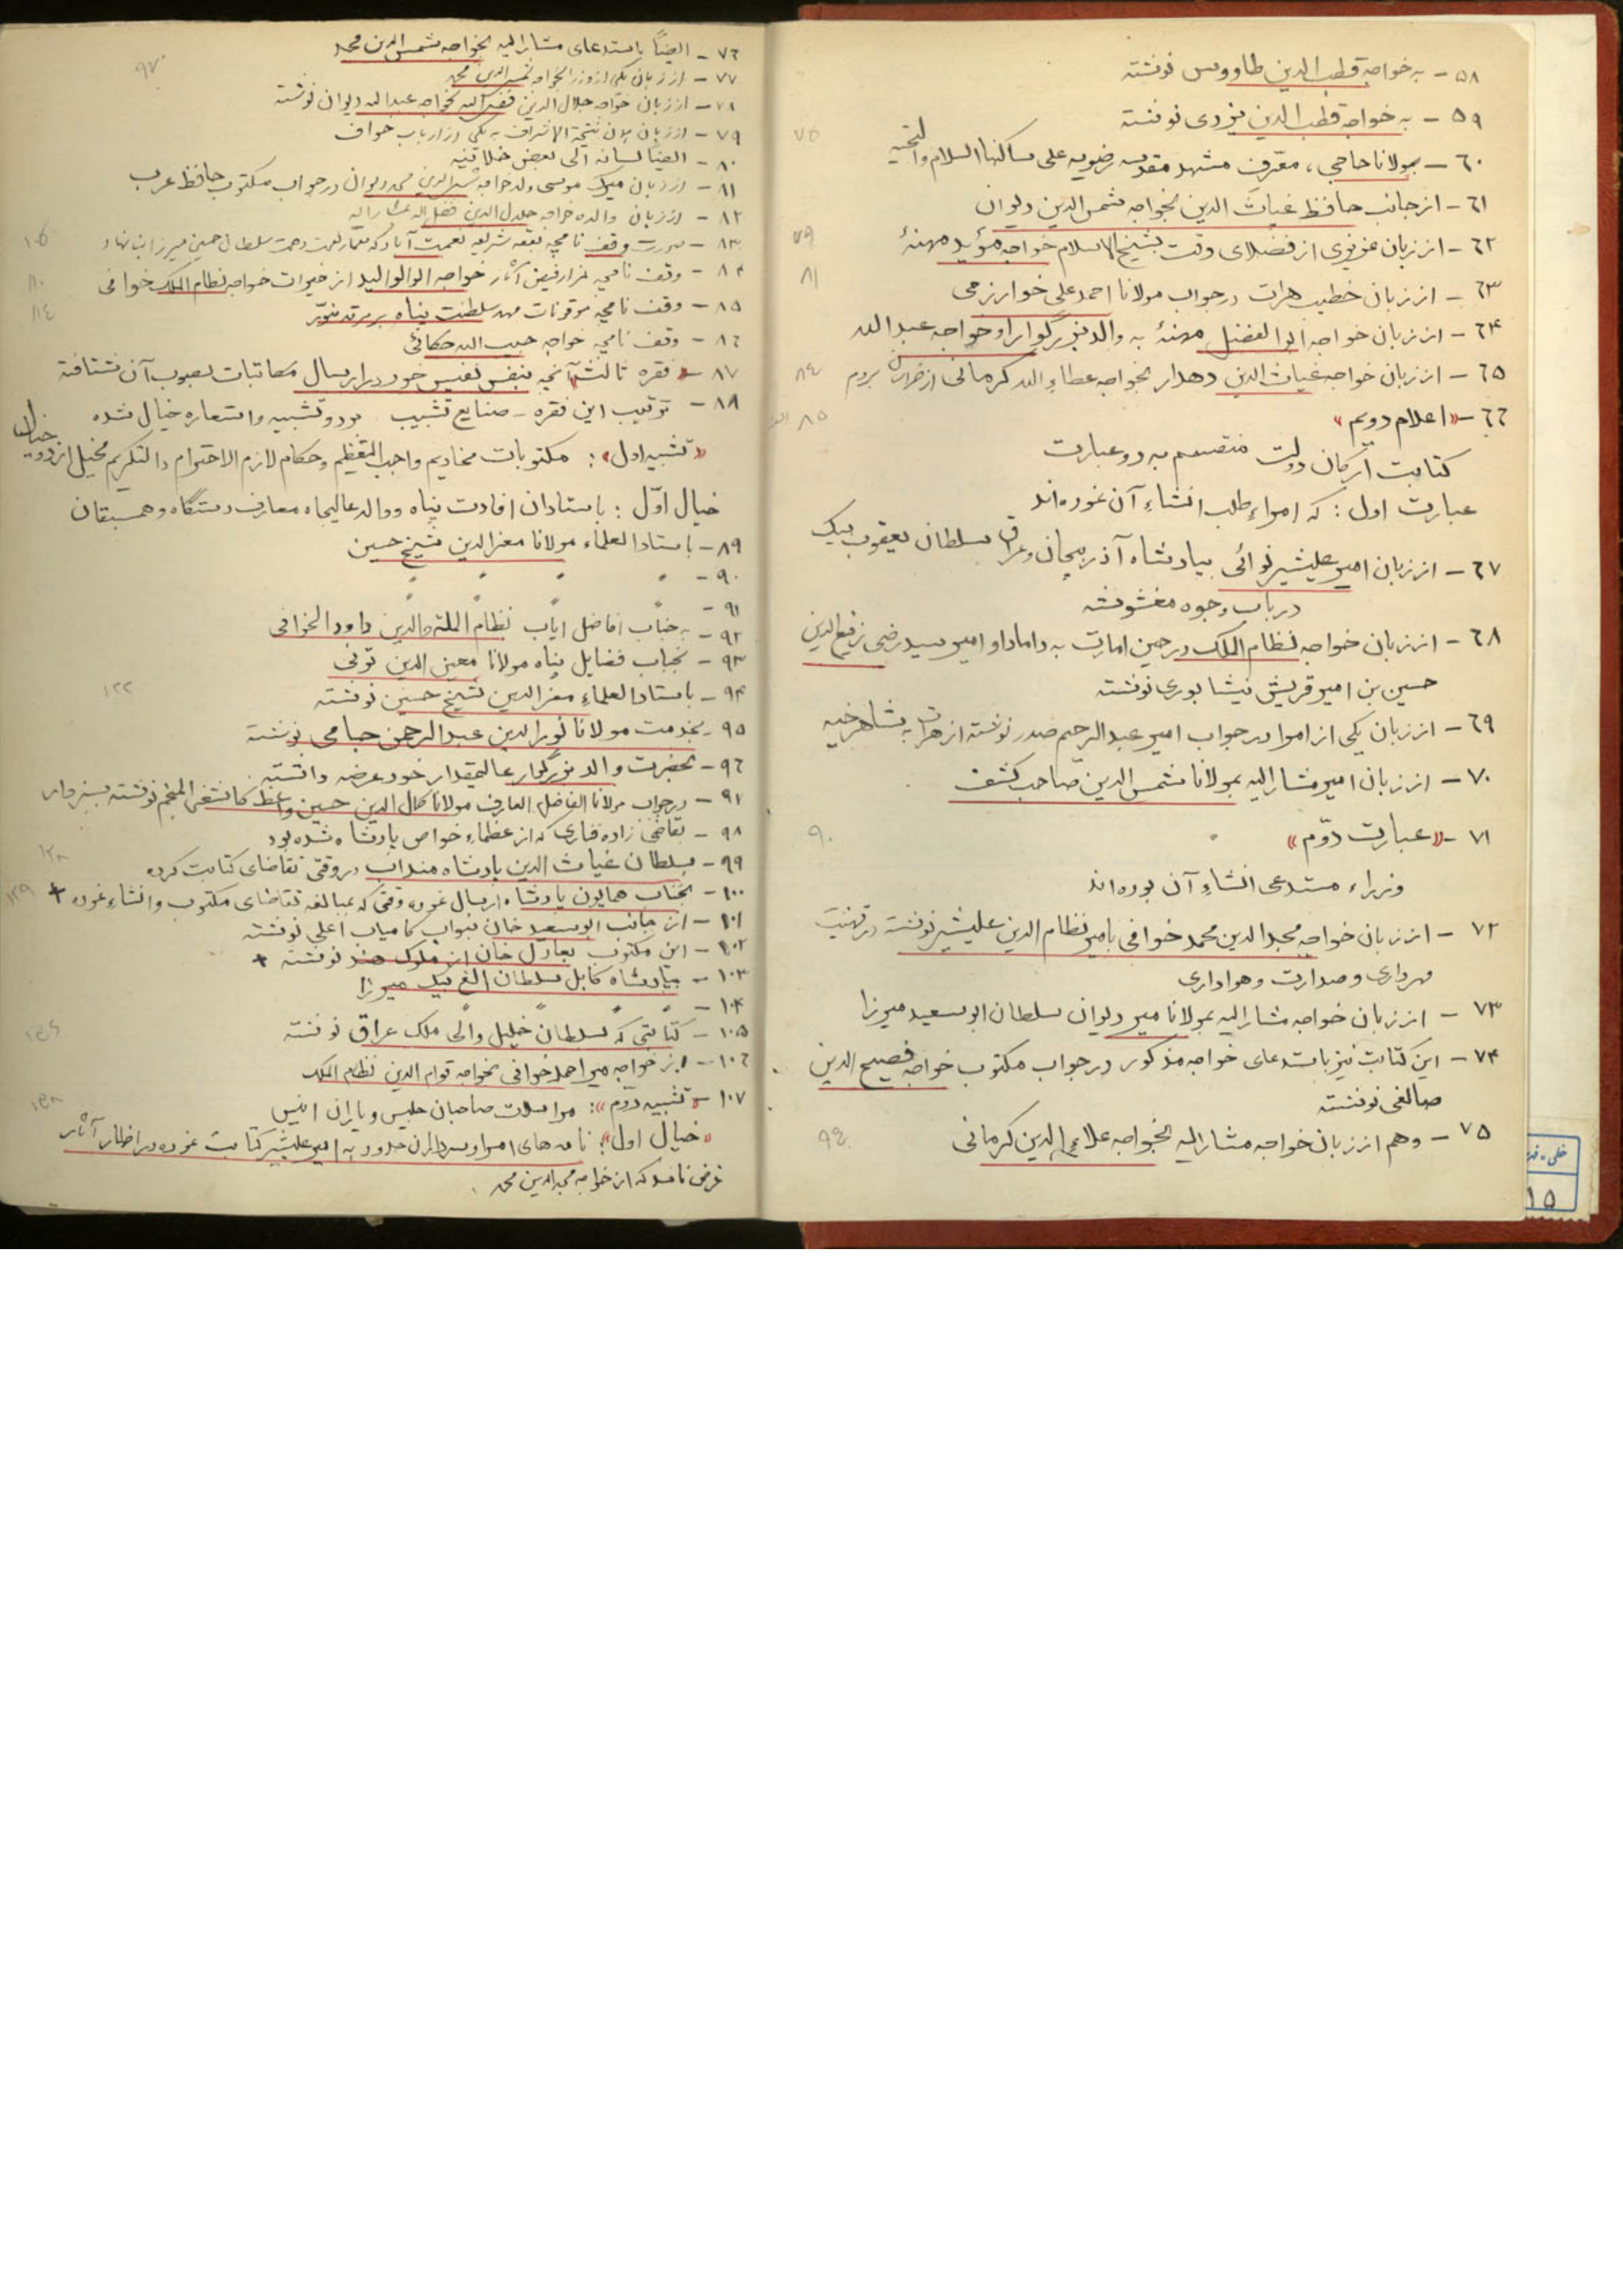 ۵۸ - به خواجه قطب الدین طاووس نوشته
۵۹ - به خواجه قطب الدین یزدی نوشته
۷۵
٦۰ - بمولانا حاجی، معرف مشهد مقدسه رضویه علی ساکنها السلام والتحیه
٦۱ - از جانب حافظ غیاث الدین بخواجه شمس الدین دیوان
٦۲ - از زبان عزیزی از فضلای وقت بشیخ الاسلام خواجه مؤید مهنهٔ
۷۹
٦۳ - از زبان خطیب هرات در جواب مولانا احمد علی خوارزمی
۸۱
٦۴ - از زبان خواجه ابوالفضل مهنهٔ به والد بزرگوار او خواجه عبدالله
٦۵ - از زبان خواجه غیاث الدین دهدار بخواجه عطاء الله کرمانی از خراسان بروم
۸٤
٦٦ - «اعلام دویم»
۸۵
کتابت ارکان دولت منقسم به دو عبارت
عبارت اول: که امراء طلب انشاء آن نموده‌اند
٦۷ - از زبان امیر علیشیر نوائی بپادشاه آذربیجان و عراق سلطان یعقوب بیک
در باب وجوه مغشوشه
٦۸ - از زبان خواجه نظام الملک در حین امارت به داماد او امیر سید رضی رفیع الدین
حسین بن امیر قریش نیشابوری نوشته
٦۹ - از زبان یکی از امرا در جواب امیر عبدالرحیم صدر نوشته از هرات به شاهرخیه
۷۰ - از زبان امیر مشار الیه بمولانا شمس الدین صاحب کشف
۷۱ - «عبارت دوّم»
۹۰
وزراء مستدعی انشاء آن بوده‌اند
۷۲ - از زبان خواجه مجد الدین محمد خوافی بامیر نظام الدین علیشیر نوشته در تهنیت
مهرداری و صدارت و هواداری
۷۳ - از زبان خواجه مشار الیه بمولانا میر دیوان سلطان ابوسعید میرزا
۷۴ - این کتابت نیز باستدعای خواجه مذکور در جواب مکتوب خواجه فصیح الدین
صالغی نوشته
۷۵ - وهم از زبان خواجه مشار الیه بخواجه علاء الدین کرمانی
۹٤
۷٦ - ایضاً باستدعای مشار الیه بخواجه شمس الدین محمد
۹۷
۷۷ - از زبان یکی از وزرا بخواجه شمس الدین محمد
۷۸ - از زبان خواجه جلال الدین فضل الله بخواجه عبدالله دیوان نوشته
۷۹ - از زبان نتیجة الاشراف به یکی از ارباب خواف
۸۰ - ایضاً لسانه الی بعض خلانیه
۸۱ - از زبان میرک موسی ولد خواجه شمس الدین محمد دیوان در جواب مکتوب حافظ عرب
۸۲ - از زبان والده خواجه جلال الدین فضل الله مشار الیه
۸۳ - صورت وقف نامچه بقعه شریفه نعمت آباد که معمار نعمت سلطان حسین میرزا بنا نهاد
۱۰۶
۸۴ - وقف نامچه مزار فیض آثار خواجه ابوالولید از خیرات خواجه نظام الملک خوافی
۱۱۰
۸۵ - وقف نامچه موقوفات مهد سلطنت پناه بر مرقد منوّر
۱۱٤
۸٦ - وقف نامچه خواجه حبیب الله حکاکی
۸۷ - «فقره ثالث» آنچه بنفس نفیس خود در ارسال مکاتبات بصوب آن شتافته
۸۸ - ترتیب این فقره - صنایع تشبیب بدو تشبیه و استعاره خیال شده
«تشبیه اول»: مکتوبات مخادیم واجب التعظیم و حکام لازم الاحترام والتکریم مخیل از دو خیال
خیال اوّل: باستادان افادت پناه و والد عالیجاه معارف دستگاه و همسبقان
۸۹ - باستاد العلماء مولانا معز الدین شیخ حسین
۹۰ - " " " "
۹۱ -
۹۲ - به جناب افاضل ایاب نظام الملة والدین داود الخوافی
۹۳ - بجناب فضایل پناه مولانا معین الدین تونی
۹۴ - باستاد العلماء معز الدین شیخ حسین نوشته
۱۲۲
۹۵ - بخدمت مولانا نور الدین عبدالرحمن جامی نوشته
۹٦ - بحضرت والد بزرگوار عالیمقدار خود عرضه داشته
۹۷ - در جواب مولانا الفاضل العارف مولانا کمال الدین حسین واعظ کاشفی المنجم نوشته بسبزوار
۹۸ - بقاضی زاده فناری که از عظماء خواص پادشاه شده بود
۹۹ - بسلطان غیاث الدین پادشاه مندانه در وقتی تقاضای کتابت کرده
۱۲۸
۱۰۰ - بجناب همایون پادشاه ارسال نموده وقتی که بمبالغه تقاضای مکتوب و انشاء نموده +
۱۲۹
۱۰۱ - از جانب ابوسعید خان بنواب کامیاب اعلی نوشته
۱۰۲ - این مکتوب بعادل خان از ملوک هند نوشته +
۱۰۳ - بپادشاه کابل سلطان الغ بیک میرزا
۱۰۴ - " " " "
۱۰۵ - کتابتی که بسلطان خلیل والی ملک عراق نوشته
۱۰٦ - از خواجه میر احمد خوافی بخواجه قوام الدین نظام الملک
۱۰۷ - «تشبیه دوّم»: مراسلات صاحبان جلیس و یاران انیس
«خیال اول»: نامه‌های امرا و سرداران حدود به امیر علیشیر کتابت نموده در اظهار آثار
غرض نامه که از خواجه مجد الدین محمد
۱۵